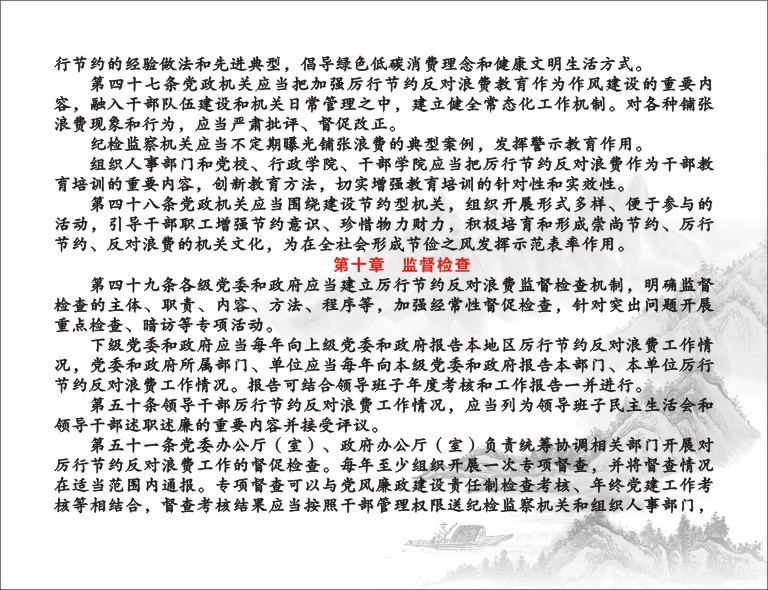 行节约的经验做法和先进典型，倡导绿色低碳消费理念和健康文明生活方式。
第四十七条党政机关应当把加强厉行节约反对浪费教育作为作风建设的重要内
容，融入干部队伍建设和机关日常管理之中，建立健全常态化工作机制。对各种铺张
浪费现象和行为，应当严肃批评、督促改正。
纪检监察机关应当不定期曝光铺张浪费的典型案例，发挥警示教育作用。
组织人事部门和党校、行政学院、干部学院应当把厉行节约反对浪费作为干部教
育培训的重要内容，创新教育方法，切实增强教育培训的针对性和实效性。
第四十八条党政机关应当围绕建设节约型机关，组织开展形式多样、便于参与的
活动，引导干部职工增强节约意识、珍惜物力财力，积极培育和形成崇尚节约、厉行
节约、反对浪费的机关文化，为在全社会形成节俭之风发挥示范表率作用。
第十章　监督检查
第四十九条各级党委和政府应当建立厉行节约反对浪费监督检查机制，明确监督
检查的主体、职责、内容、方法、程序等，加强经常性督促检查，针对突出问题开展
重点检查、暗访等专项活动。
下级党委和政府应当每年向上级党委和政府报告本地区厉行节约反对浪费工作情
况，党委和政府所属部门、单位应当每年向本级党委和政府报告本部门、本单位厉行
节约反对浪费工作情况。报告可结合领导班子年度考核和工作报告一并进行。
第五十条领导干部厉行节约反对浪费工作情况，应当列为领导班子民主生活会和
领导干部述职述廉的重要内容并接受评议。
第五十一条党委办公厅（室）、政府办公厅（室）负责统筹协调相关部门开展对
厉行节约反对浪费工作的督促检查。每年至少组织开展一次专项督查，并将督查情况
在适当范围内通报。专项督查可以与党风廉政建设责任制检查考核、年终党建工作考
核等相结合，督查考核结果应当按照干部管理权限送纪检监察机关和组织人事部门，